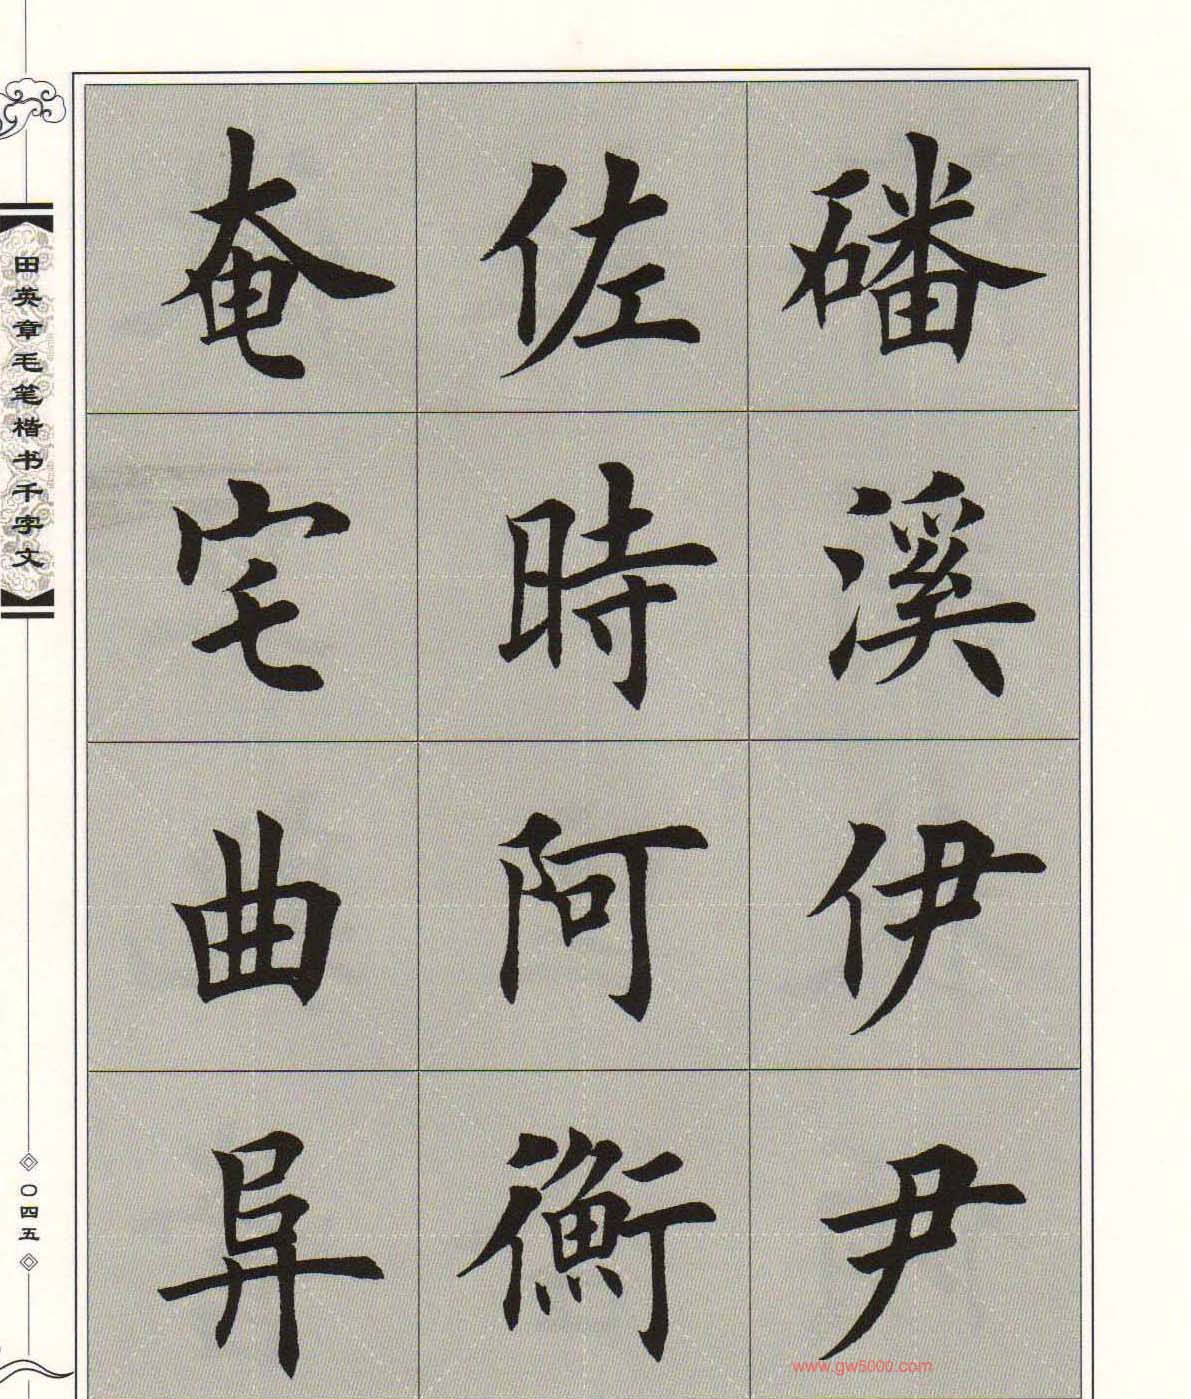 磻溪伊尹
佐時阿衡
奄宅曲阜
田英章毛笔楷书千字文
〇四五
www.gw5000.com